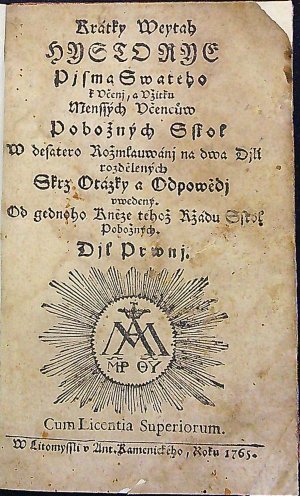 Krátky Weytah
HYSTORYE
Pjsma Swateho
k Včenj, a Vžitku
Menssých Včencůw
Pobožných Sskol
W desatero Rozmlauwánj na dwa Djli
rozdělených
Skrz Otázky a Odpowědj
vwedený.
Od gednoho Kněze tehož Ržádu Sskol
Pobožných.
Djl Prwnj.
MA
MP ΘY
Cum Licentia Superiorum.
W Litomyssli v Ant. Kamenického, Roku 1765.